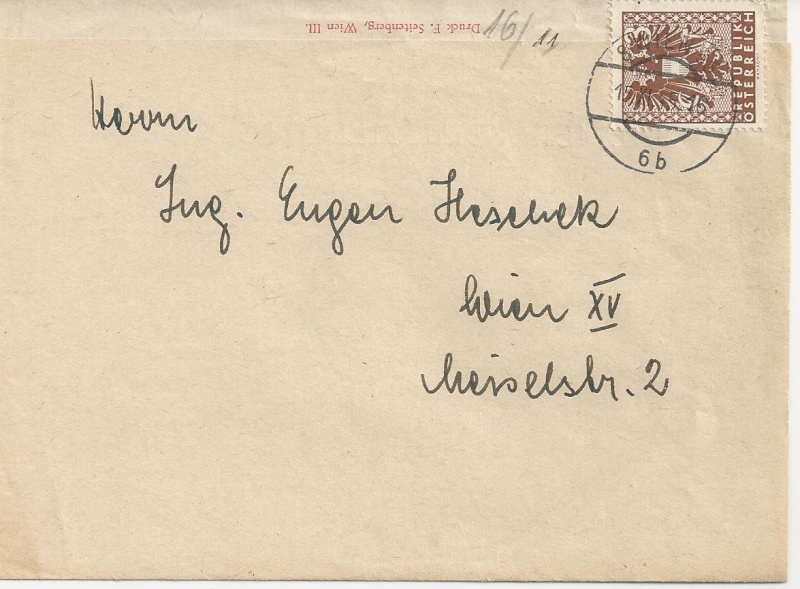 Druck F. Seitenberg, Wien III.
16/11
REPUBLIK
ÖSTERREICH
6b
Herrn
Ing. Eugen Heschek
Wien XV
Meiselstr. 2